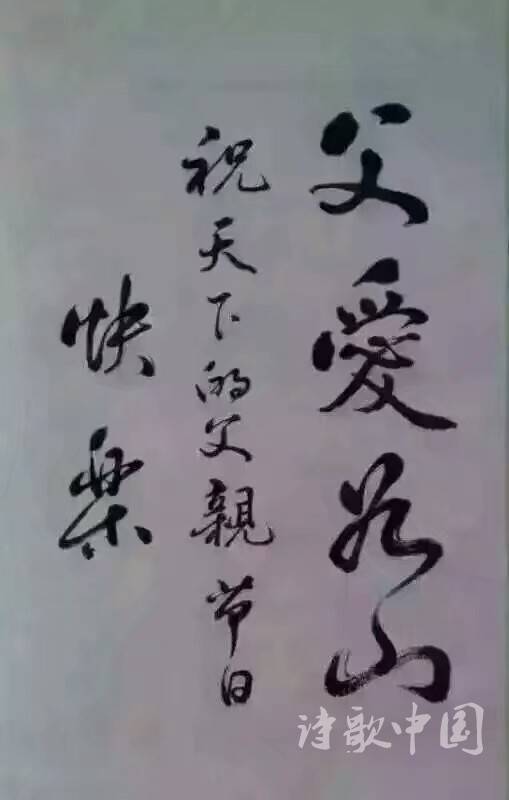 父愛如山
祝天下的父親节日
快樂
诗歌中国